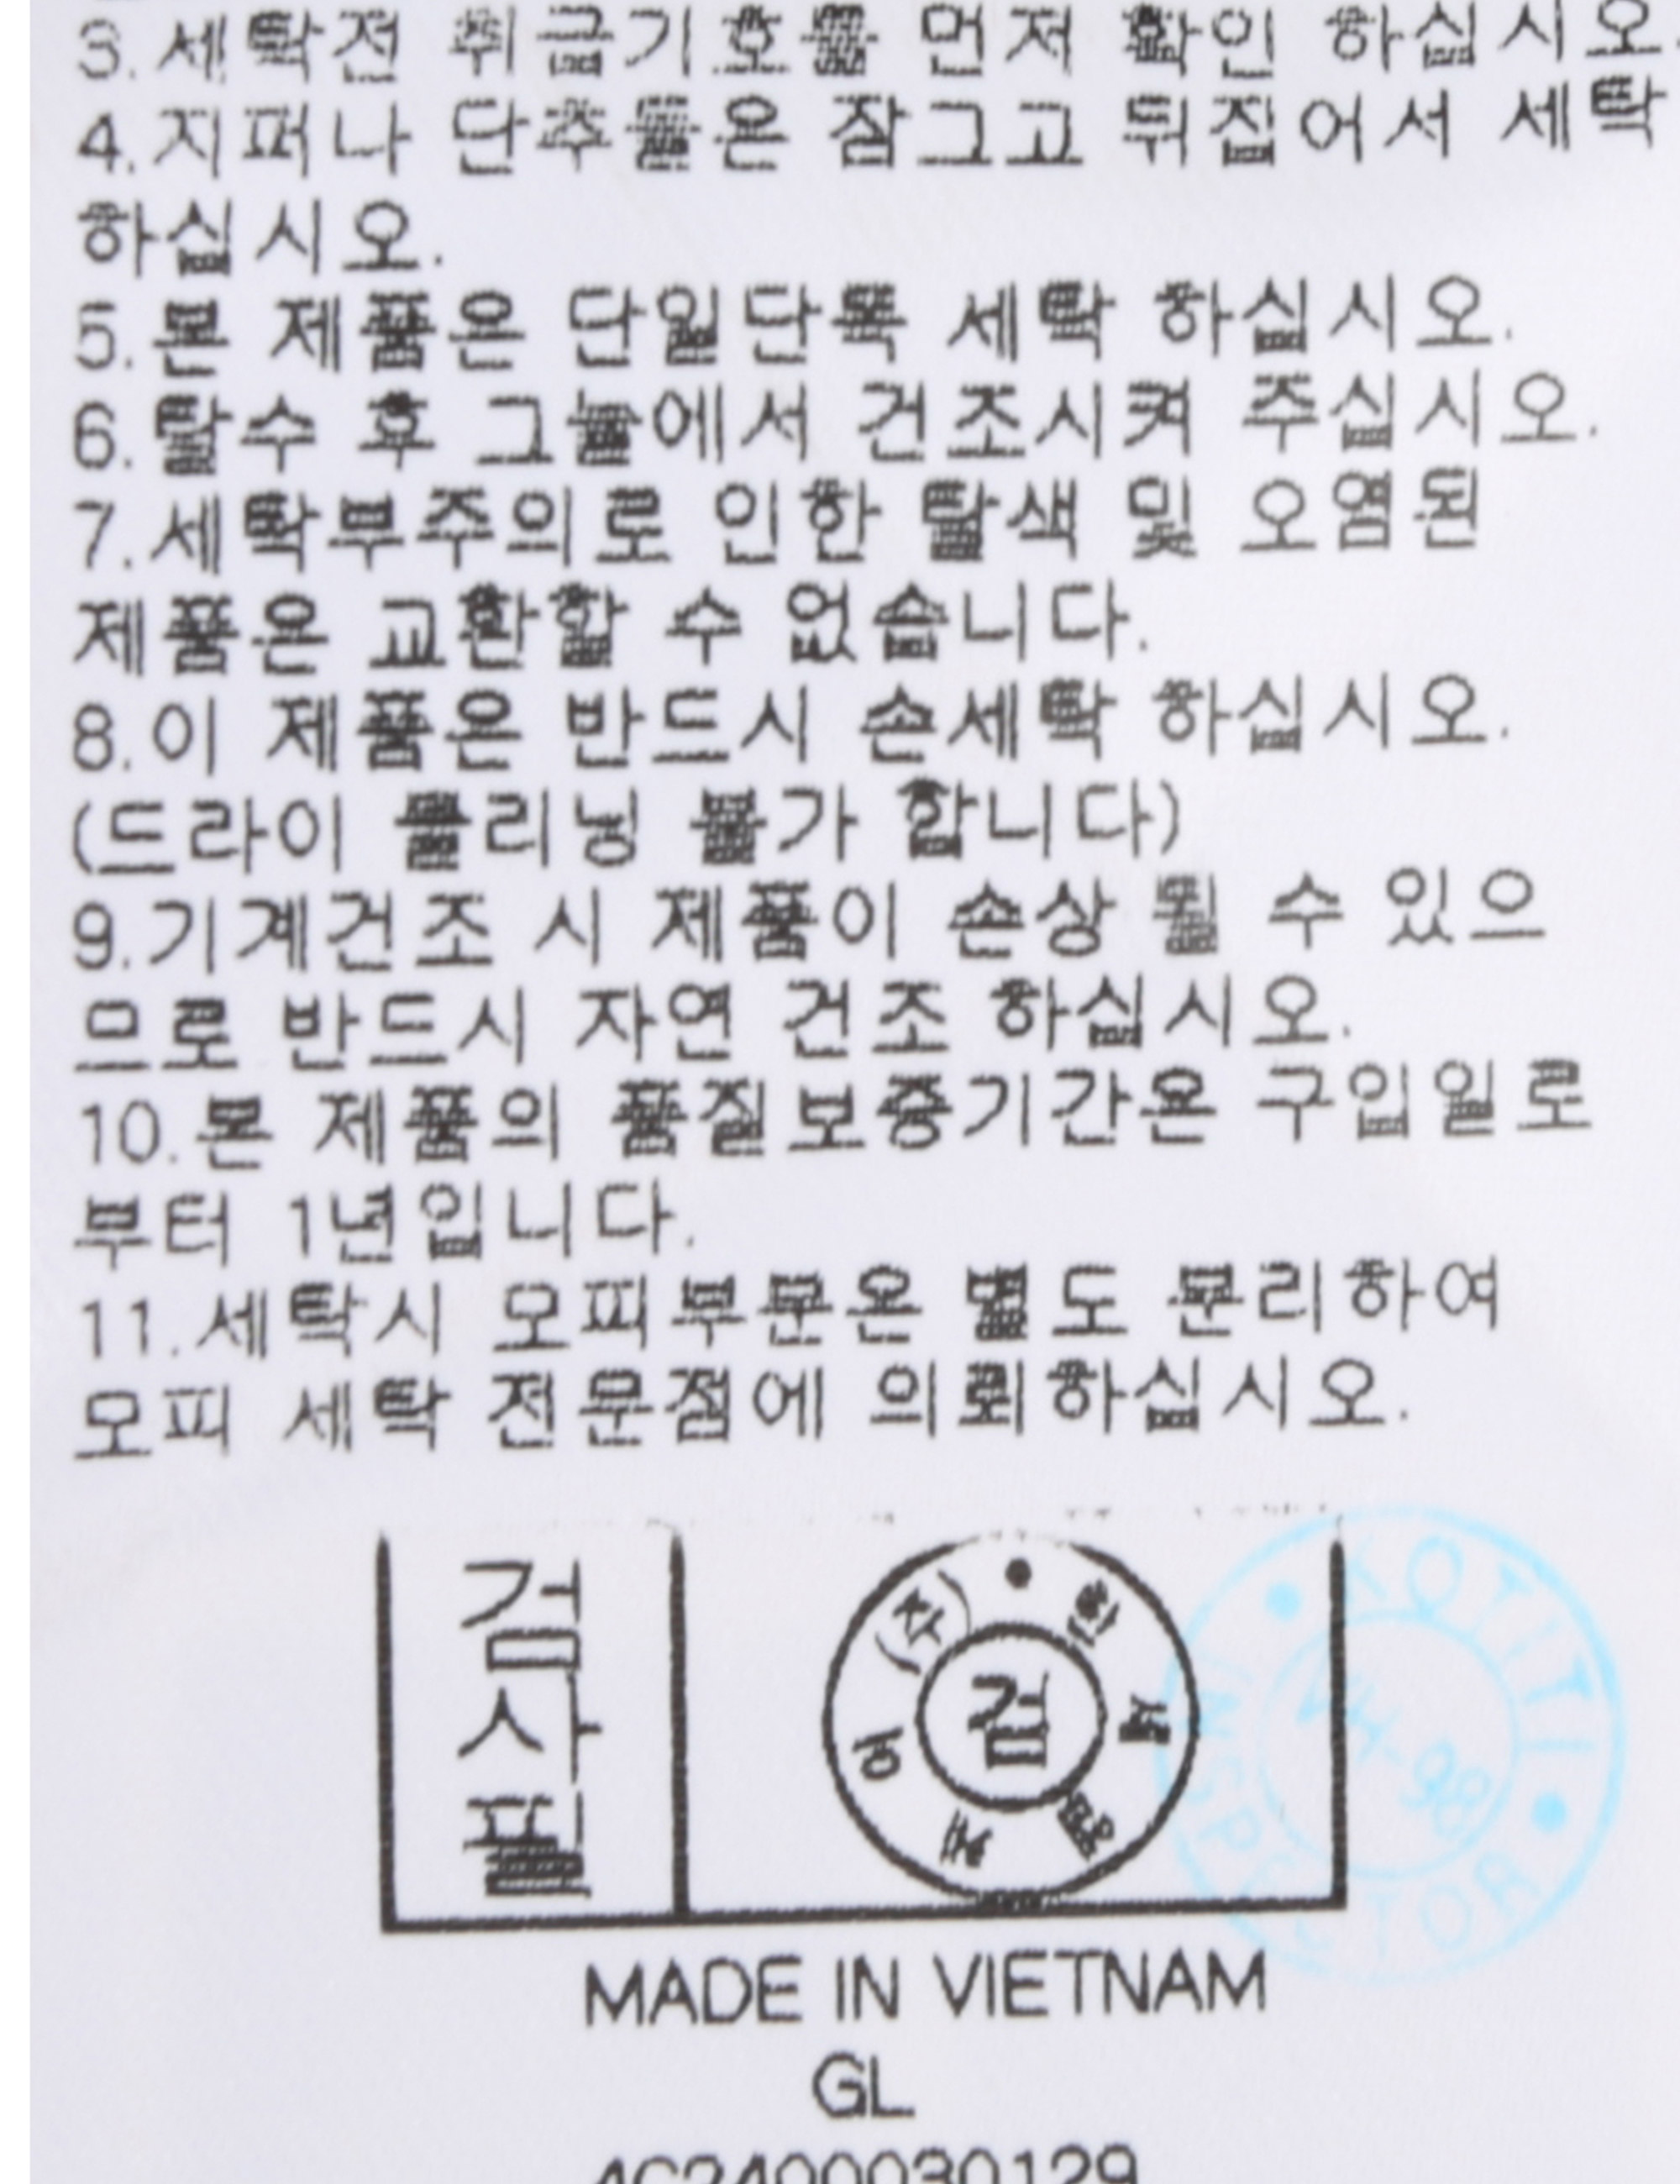 3.세탁전 취급기호를 먼저 확인 하십시오.
4.지퍼나 단추들은 잠그고 뒤집어서 세탁
하십시오.
5.본 제품은 단일단독 세탁 하십시오.
6.탈수 후 그늘에서 건조시켜 주십시오.
7.세탁부주의로 인한 탈색 및 오염된
제품은 교환할 수 없습니다.
8.이 제품은 반드시 손세탁 하십시오.
(드라이 클리닝 불가 합니다)
9.기계건조 시 제품이 손상 될 수 있으
므로 반드시 자연 건조 하십시오.
10.본 제품의 품질보증기간은 구입일로
부터 1년입니다.
11.세탁시 모피부분은 별도 분리하여
모피 세탁 전문점에 의뢰하십시오.
검사필
(주)한세엠주어
검
KOTITI
VH-98
INSPECTOR
MADE IN VIETNAM
GL
4C2400030129